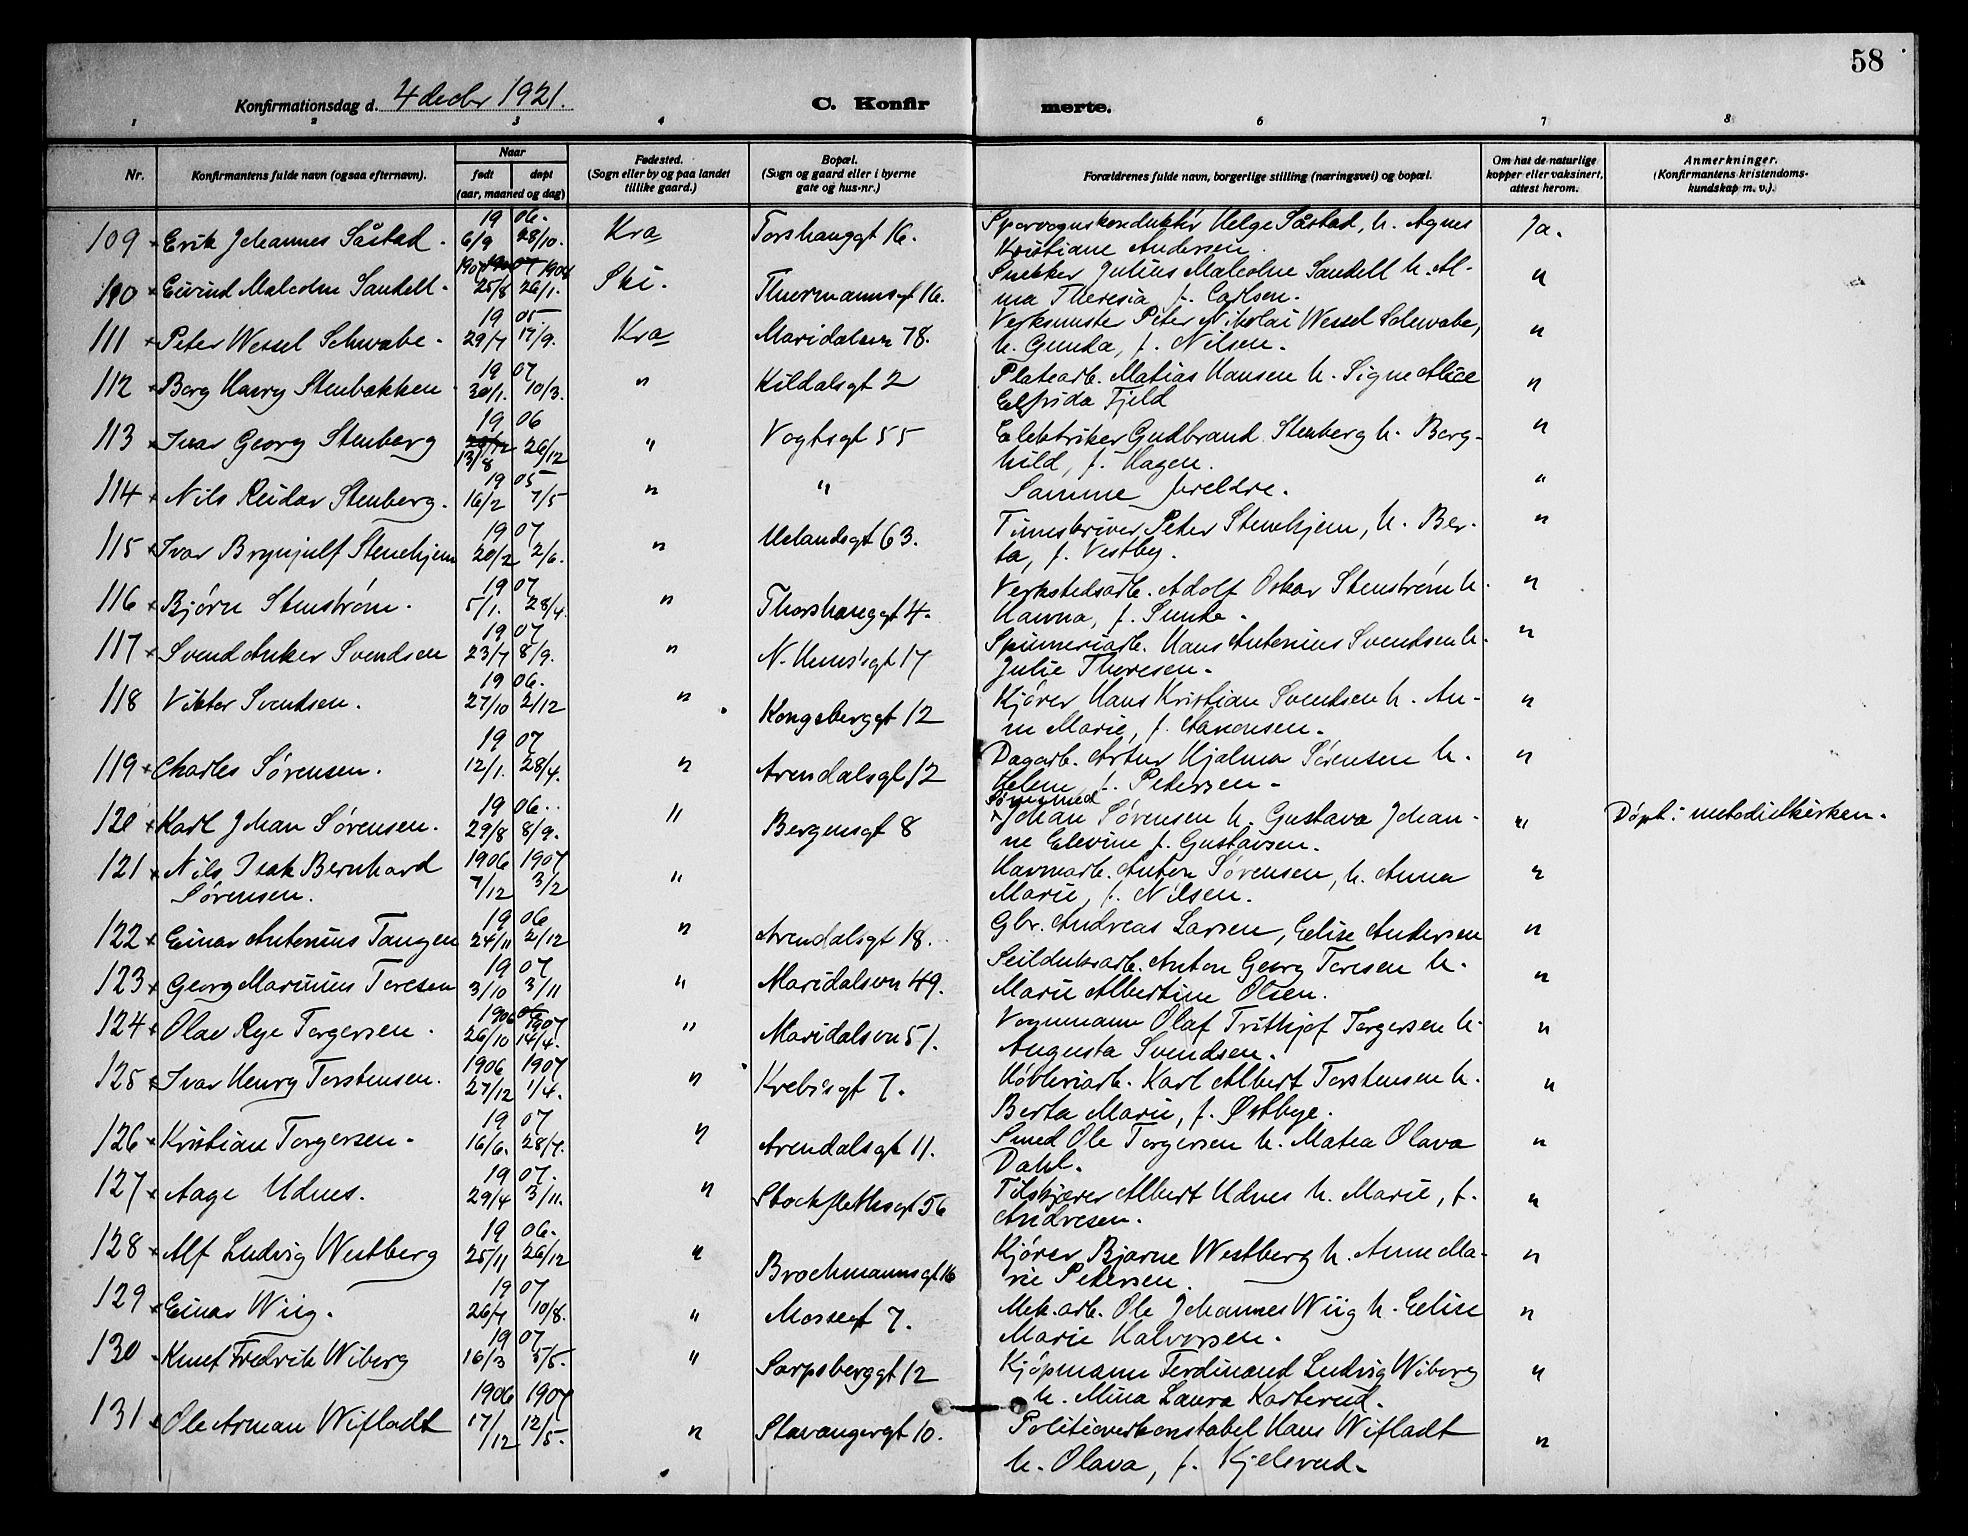 58
Konfirmationsdag d. 4 decbr 1921. C. Konfirmerte.
1 2 3 4 6 7 8
Nr. Konfirmantens fulde navn (ogsaa efternavn). Naar født døpt (aar, maaned og dag) Fødested. (Sogn eller by og paa landet tillike gaard.) Bopæl. (Sogn og gaard eller i byerne gate og hus-nr.) Forældrenes fulde navn, borgerlige stilling (næringsvei) og bopæl. Om hat de naturlige kopper eller vaksinert, attest herom. Anmerkninger. (Konfirmantens kristendoms-kundskap m. v.)
109 Erik Johannes Såstad. 1906. 6/9 28/10. Kra Torshauggt 16. Sporvognskonduktør Helge Såstad, h. Agnes Ja.
Kristiane Andersen.
110 Eivind Malcolm Sandell. 1907 25/8 1908 26/1. Ski. Thurmannsgt 16. Snekker Julius Malcolm Sandell h. Al- "
ma Theresia, f. Carlsen.
111 Peter Wessel Schwabe. 1905 29/7 17/9. Kra Maridalsvn 78. Verksmster Peter Nikolai Wessel Schwabe, "
h. Gunda, f. Nilsen.
112 Berg Harry Stenbakken 1907 30/1. 10/3. " Kildalsgt 2 Platearb. Matias Hansen h. Signe Alice "
Elfrida Fjeld
113 Ivar Georg Stenberg 1906 13/8 26/12 " Vogtsgt 55 Elektriker Gudbrand Stenberg h. Borg- "
hild, f. Hagen.
114 Nils Reidar Stenberg. 1905 16/2 7/5 " " Samme foreldre. "
115 Ivar Brynjulf Stenehjem 1907 20/2 2/6. " Uelandsgt 63. Timeskriver Peter Stenehjem, h. Ber- "
ta, f. Vestby.
116 Bjørn Stenstrøm. 1907 5/1. 28/4. " Thorshauggt 4. Verkstedsarb. Adolf Oskar Stenstrøm h. "
Hanna, f. Sunde.
117 Svend Anker Svendsen 1907 23/7 8/9. " N. Huus'sgt 17 Spinneriarb. Hans Antonius Svendsen h. "
Julie Theresen.
118 Viktor Svendsen. 1906. 27/10 2/12 " Kongsberggt 12 Kjører Hans Kristian Svendsen h. An- "
ne Marie, f. Aamonsen.
119 Charles Sørensen. 1907 12/1. 28/4. " Arendalsgt 12 Dagarb. Artur Hjalmar Sørensen h. "
Helene f. Petersen.
120 Karl Johan Sørensen. 1906.. 29/8 8/9. " Bergensgt 8 Johan Sørensen h. Gustava Johan- " Døpt i metodistkirken.
ne Elevine f. Gustavsen.
121 Nils Isak Bernhard 1906 1907 " Havnearb. Anton Sørensen, h. Anna "
Sørensen. 7/12 3/2 Marie, f. Nilsen.
122 Einar Antonius Tangen 1906 24/11 2/12 " Arendalsgt 18. Gbr. Andreas Larsen, Elise Andersen "
123 Georg Marinius Toresen 1907 3/10 3/11 " Maridalsvn 49. Seilduksarb. Anton Georg Toresen h. "
Marie Albertine Olsen.
124 Olav Rye Torgersen. 1906 26/10 1907 14/4. " Maridalsvn 51. Vognmann Olaf Frithjof Torgersen h. "
Augusta Svendsen.
125 Ivar Henry Torstensen. 1906 27/12 1907 1/4. " Krebs'gt 7. Høvleriarb. Karl Albert Torstensen h. "
Berta Marie, f. Østbye.
126 Kristian Torgersen. 1907 16/6. 28/7. " Arendalsgt 11. Smed Ole Torgersen h. Matea Olava "
Dahl.
127 Aage Udnes. 1907. 29/4 3/11. " Stockflethsgt 56 Tilskjærer Albert Udnes h. Marie, f. "
Andresen.
128 Alf Ludvig Westberg 1906. 25/11 26/12 " Brochmannsgt 16 Kjører Bjarne Westberg h. Anne Ma- "
rie Petersen.
129 Einar Wiig. 1907 26/7 10/8. " Mossegt 7. Mek.arb. Ole Johannes Wiig h. Elise "
Marie Halvorsen.
130 Knut Fredrik Wiborg 1907 16/3 5/5. " Sarpsborggt 12 Kjøpmann Ferdinand Ludvig Wiborg "
h. Mina Laura Karterud.
131 Ole Arman Wifladt 1906 17/12 1907 12/5. " Stavangergt 10. Politioverkonstabel Hans Wifladt "
h. Olava, f. Kjelsrud.